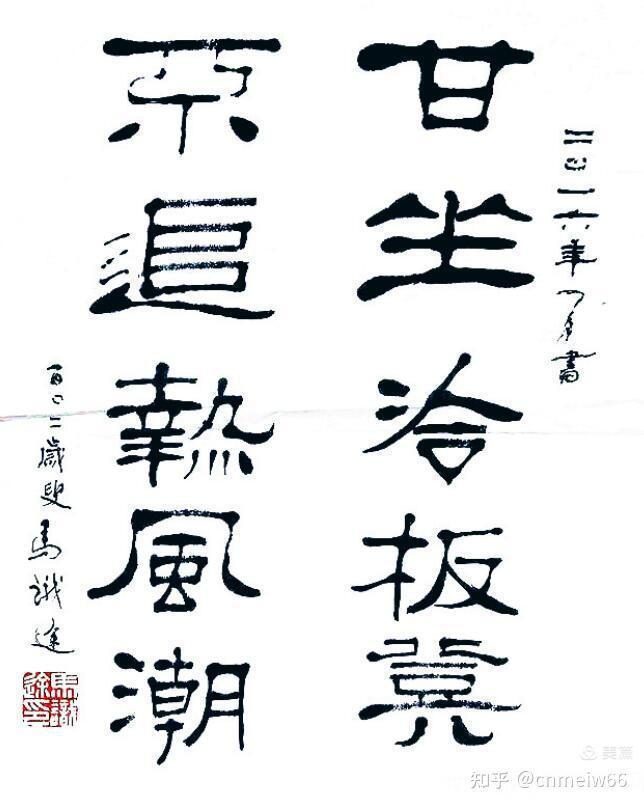 二〇一六年四月書
甘坐冷板凳
不追熱風潮
百〇二歲叟馬識途
馬識途印
美篇
知乎 @cnmeiw66